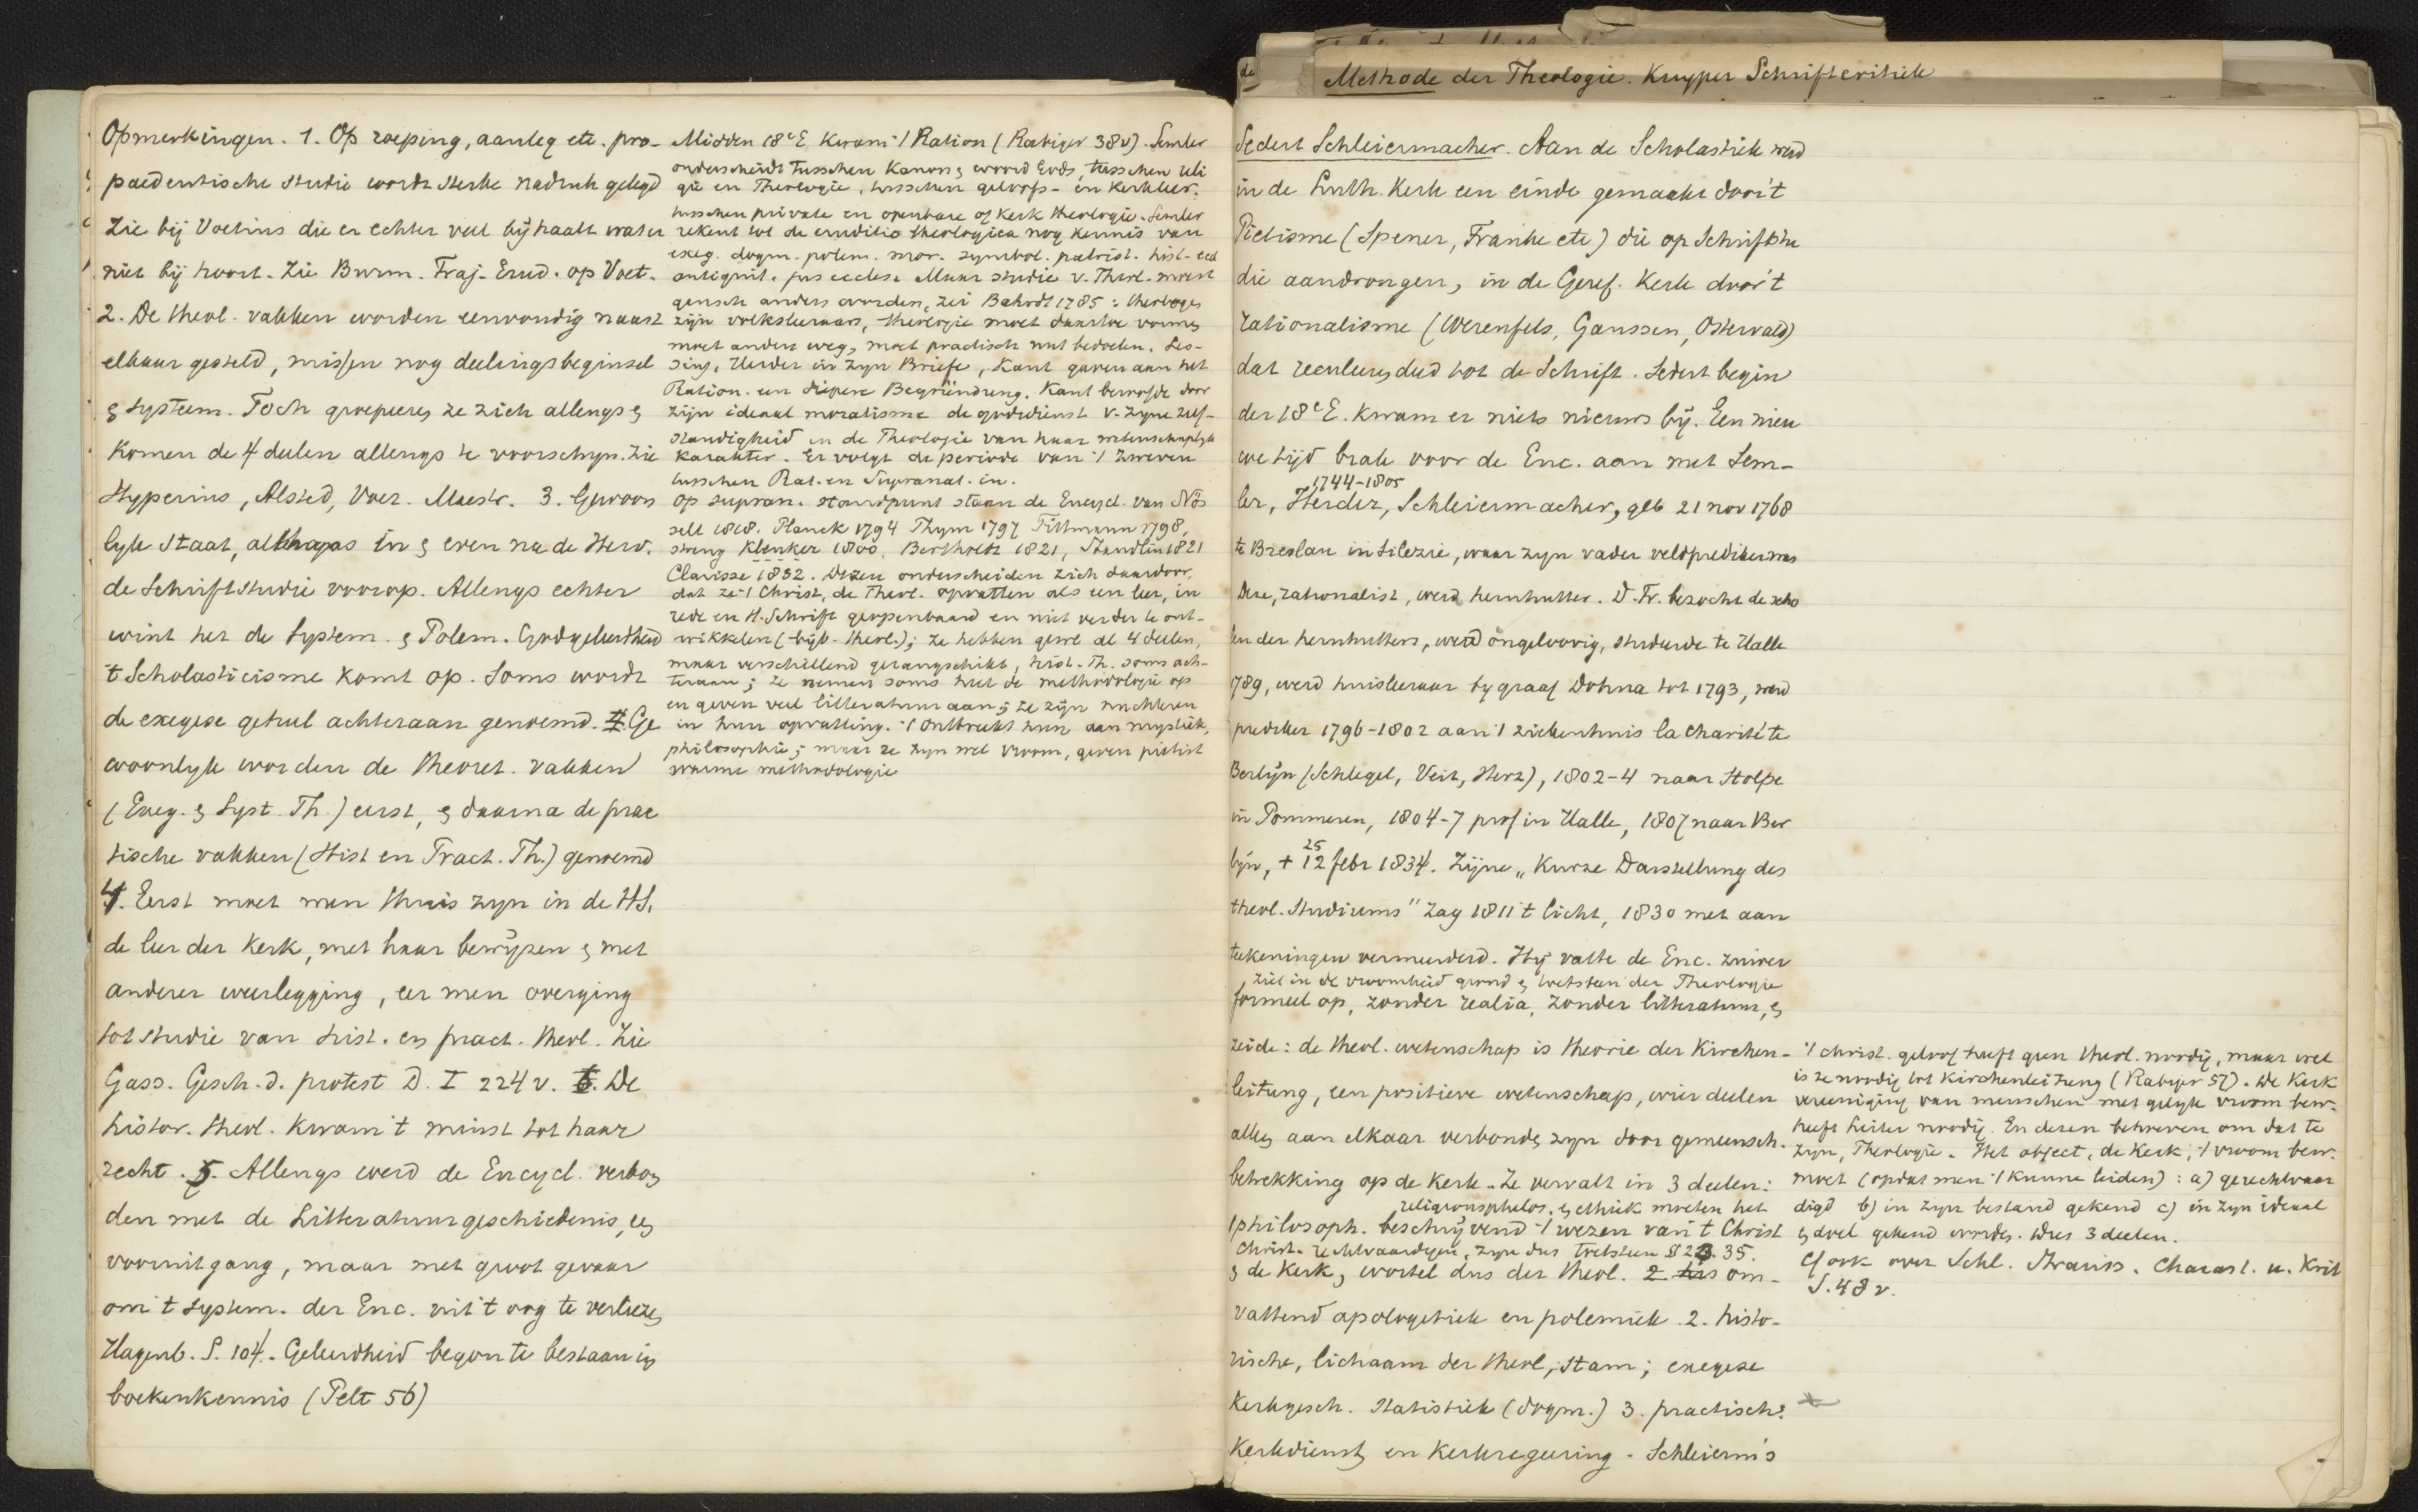 Opmerkingen. 1. Op roeping, aanleg etc. pro-
paedeutische studie wordt sterke nadruk gelegd
Zie bij Voetius die er echter veel bijhaalt wat er
niet bij hoort. Zie Burm. Traj. Erud. op Voet.
2. De theol. vakken worden eenvoudig naast
elkaar gesteld, missen nog deelingsbeginsel
& systeem. Toch groepeeren ze zich allengs &
komen de 4 deelen allengs te voorschijn. Zie
Hyperius, Alsted, Voet. Maestr. 3. Gewoon
lijk staat, althans in & even na de Herv.
de Schriftstudie voorop. Allengs echter
wint het de System. & Polem. Godgeleerdheid
't Scholasticisme komt op. Soms wordt
de exegese geheel achteraan genoemd. Ge
woonlijk worden de theoret. vakken
(Exeg. & Syst. Th.) eerst, & daarna de prac
tische vakken (Hist en Pract. Th.) genoemd
4. Eerst moet men thuis zijn in de HS,
de leer der Kerk, met haar bewijzen & met
anderer weerlegging, eer men overging
tot studie van hist. en pract. theol. Zie
Gass. Gesch. d. protest D. I 224 v. De
histor. theol. kwam 't minst tot haar
recht. 5. Allengs werd de Encycl. verbon
den met de Litteratuurgeschiedenis, een
vooruitgang, maar met groot gevaar
om 't system. der Enc. uit 't oog te verliezen
Hagenb. S. 104. Geleerdheid begon te bestaan in
boekenkennis (Pelt 56)
Midden 18e E. kwam 't Ration (Rabiger 38v). Semler
onderscheidt tusschen Kanon & woord Gods, tusschen reli
gie en Theologie, tusschen geloofs- en kerkleer,
tusschen private en openbare of kerk theologie. Semler
rekent tot de eruditio theologica nog kennis van
exeg. dogm. polem. mor. symbol. patrist. hist-eccl
antiquit. jus eccles. Maar studie v. Theol. moest
gansch anders worden, zei Bahrdt 1785: theologen
zijn volksleeraars, theologie moet daartoe vormen
moet andere weg, moet practisch nut bedoelen. Les-
sing, Herder in zijn Briefe, Kant gaven aan het
Ration. een diepere Begründung. Kant beroofde door
zijn ideaal moralisme de godsdienst v. zijne zelf-
standigheid en de Theologie van haar wetenschaplijk
karakter. Er volgt de periode van 't zweven
tusschen Rat. en Supranat. en.
Op supran. standpunt staan de Encycl. van Nös
selt 1818. Planck 1794 Thym 1797 Tittmann 1798,
streng Kleuker 1800, Bertholdt 1821, Staudlin 1821
Clarisse 1832. Dezen onderscheiden zich daardoor,
dat ze 't Christ, de Theol. opvatten als een leer, in
rede en H. Schrift geopenbaard en niet verder te ont-
wikkelen (bijb. theol.); ze hebben gewl al 4 deelen,
maar verschillend gerangschikt, hist. Th. soms ach-
teraan; ze nemen soms het de methodologie op
en geven veel litteratuur aan; ze zijn nuchteren
in hun opvatting. 't Ontbreekt hun aan mystiek,
philosophie; maar ze zijn wel vroom, geven pietist
warme methodologie
de
Methode der Theologie. Kuyper Schriftcritiek
Sedert Schleiermacher. Aan de Scholastiek werd
in de Luth. Kerk een einde gemaakt door 't
Pietisme (Spener, Franke etc) die op Schriftstu
die aandrongen, in de Geref. Kerk door 't
rationalisme (Werenfels, Gaussen, Osterwald)
dat teruleiden deed tot de Schrift. Sedert begin
der 18e E. kwam er niets nieuws bij. Een nieu
we tijd brak voor de Enc. aan met Sem-
1744-1805
ler, Herder, Schleiermacher, geb 21 nov 1768
te Breslau in Silezie, waar zijn vader veldprediker was
Deze, rationalist, werd hernhutter. D. Fr. bezocht de scho
len der hernhutters, werd ongeloovig, studeerde te Halle
1789, werd huisleeraar bij graaf Dohna tot 1793, werd
prediker 1796-1802 aan 't ziekenhuis la Charité te
Berlijn (Schlegel, Veit, Herz), 1802-4 naar Stolpe
in Pommeren, 1804-7 prof in Halle, 1807 naar Ber
25
lijn, + 12 febr 1834. Zijne „Kurze Darstellung des
theol. Studiums" zag 1811 't licht, 1830 met aan
teekeningen vermeerderd. Hij vatte de Enc. zuiver
, ziet in de vroomheid grond & toetssteen der Theologie
formeel op, zonder realia, zonder litteratuur, &
zeide: de theol. wetenschap is theorie der Kirchen-
leitung, een positieve wetenschap, wier deelen
alleen aan elkaar verbonden zijn door gemeensch.
betrekking op de Kerk. Ze vervalt in 3 deelen:
religionsphilos. & ethiek moeten het
1 philosoph. beschrijvend 't wezen van 't Christ
Christ. rechtvaardigen, zijn dus toetssteen § 23. 35.
& de Kerk, wortel dus der theol. om-
vattend apologetiek en polemiek. 2. histo-
rische, lichaam der theol, stam; exegese
Kerkgesch. Statistiek (dogm.) 3. practische:
Kerkdienst en Kerkregeering. Schleierm's
't christ. geloof heeft geen theol. noodig, maar wel
is ze noodig tot Kirchenleitung (Rabiger 57). De Kerk
vereeniging van menschen met gelijk vroom bew.
heeft leiter noodig. En dezen behoeven om dat te
zijn, Theologie. Het object, de Kerk, 't vroom bew.
moet (opdat men 't kunne leiden): a) gerechtvaar
digd b) in zijn bestand gekend c) in zijn ideaal
& doel gekend worden. Dus 3 deelen.
Cf ook over Schl. Strauss. Charact. u. Krit
S. 48 v.